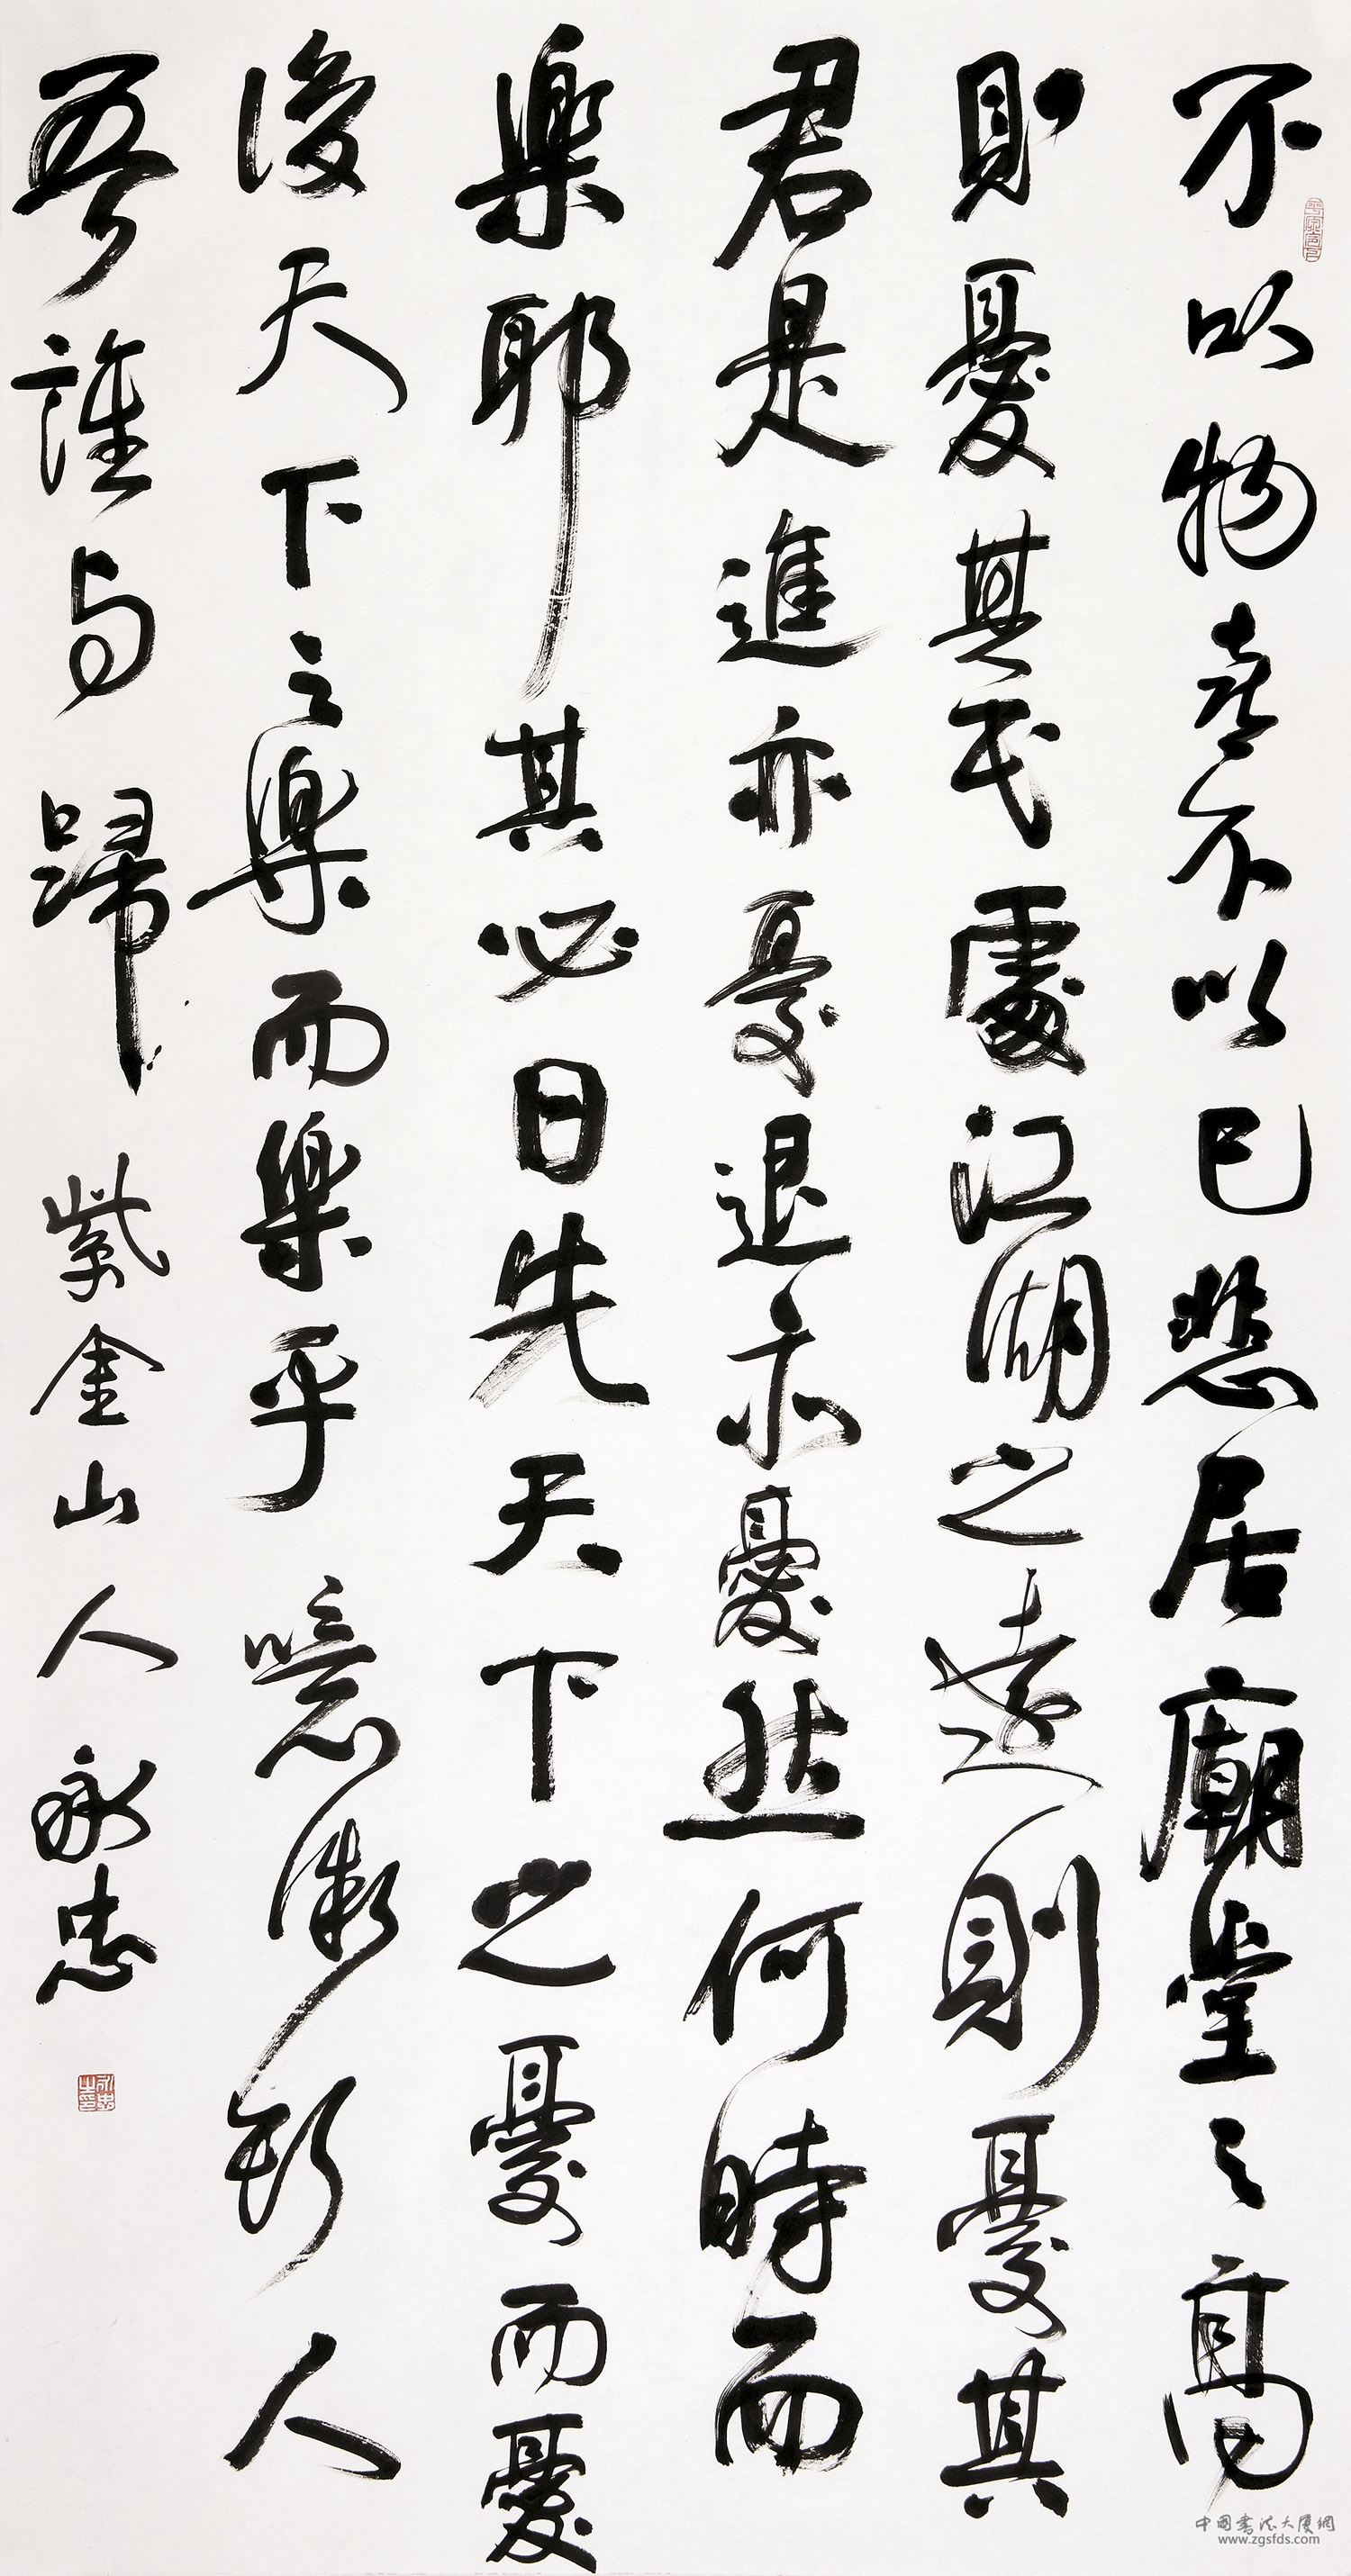 不以物喜不以己悲居廟堂之高
則憂其民處江湖之遠則憂其
君是進亦憂退亦憂然何時而
樂耶其必曰先天下之憂而憂
後天下之樂而樂乎噫微斯人
吾誰与歸
紫金山人永忠
永忠之印
中国书法大厦網
www.zgsfds.com